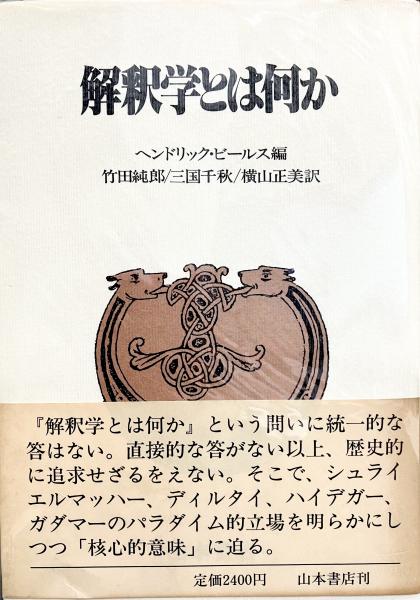 解釈学とは何か
ヘンドリック・ビールス編
竹田純郎/三国千秋/横山正美訳
『解釈学とは何か』という問いに統一的な
答はない。直接的な答がない以上、歴史的
に追求せざるをえない。そこで、シュライ
エルマッハー、ディルタイ、ハイデガー、
ガダマーのパラダイム的立場を明らかにし
つつ「核心的意味」に迫る。
定価2400円 山本書店刊